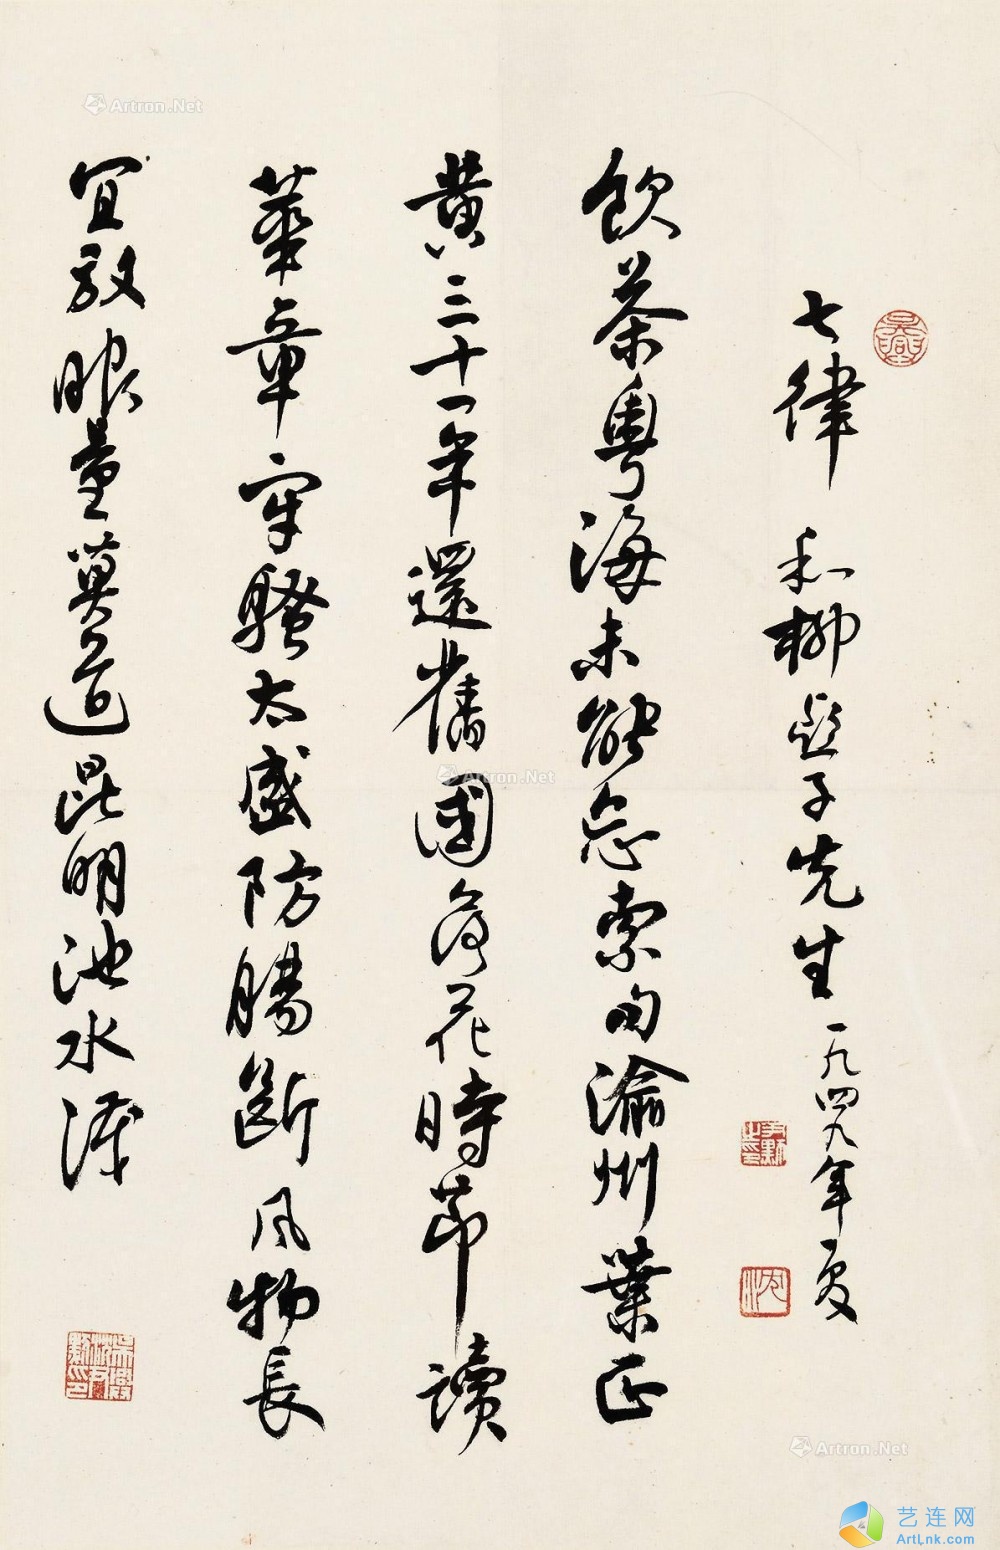 七律 和柳亞子先生 一九四九年夏
飲茶粵海未能忘索句渝州葉正
黄三十一年還舊國落花時節讀
華章牢騷太盛防腸斷風物長
宜放眼量莫道昆明池水淺
沈
Artron.Net
Artron.Net
Artron.Net
艺连网
ArtLnk.com